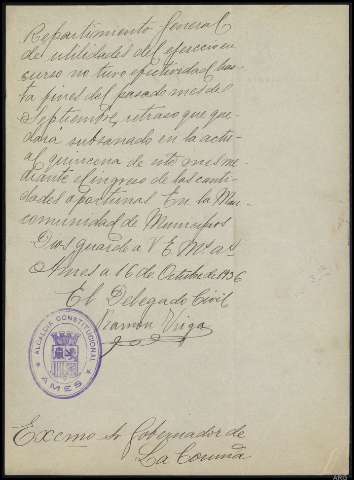 Repartimiento General
de utilidades del ejercicio en
curso no tuvo efectividad has-
ta fines del pasado mes de
Septiembre, retraso que que-
dará subsanado en la actu-
al quincena de este mes me-
diante el ingreso de las canti-
dades oportunas en la Man-
comunidad de Municipios
Dios guarde a V E. Ms. as.
Ames a 16 de Octubre de 1936
El Delegado Civil
Ramón
ALCALDIA CONSTITUCIONAL
AMES
Excmo Sr Gobernador de
La Coruña